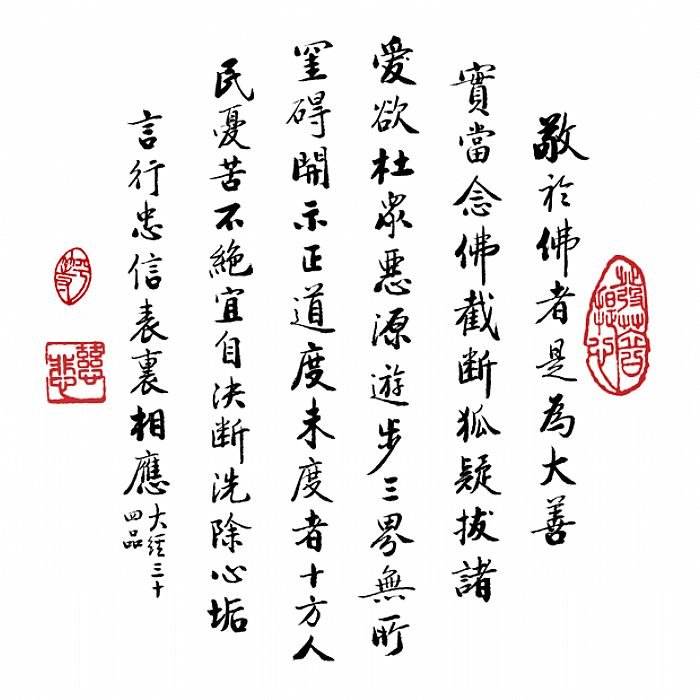 敬於佛者是為大善
實當念佛截斷狐疑拔諸
愛欲杜眾惡源遊步三界無所
罣碍開示正道度未度者十方人
民憂苦不絕宜自決斷洗除心垢
言行忠信表裏相應
大經三十
四品
慈悲